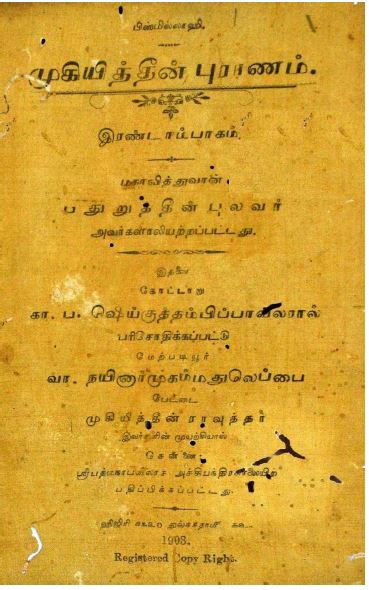 பிஸ்மில்லாஹி.
முகியித்தீன் புராணம்.
இரண்டாம்பாகம்.
மகாவித்துவான்
பதுறுத்தீன் புலவர்
அவர்களாலியற்றப்பட்டது.
இதனை
கோட்டாறு
கா. ப. ஷெய்குத்தம்பிப்பாவலரால்
பரிசோதிக்கப்பட்டு
மேற்படியூர்
வா. நயினார்முகம்மதுலெப்பை
பேட்டை
முகியித்தீன் ராவுத்தர்
இவர்களின் முயற்சியால்
சென்னை:
ஸ்ரீபத்மநாபவிலாச அச்சியந்திரசாலையிற்
பதிப்பிக்கப்பட்டது.
ஹிஜிரி
1903.
Registered Copy Right.